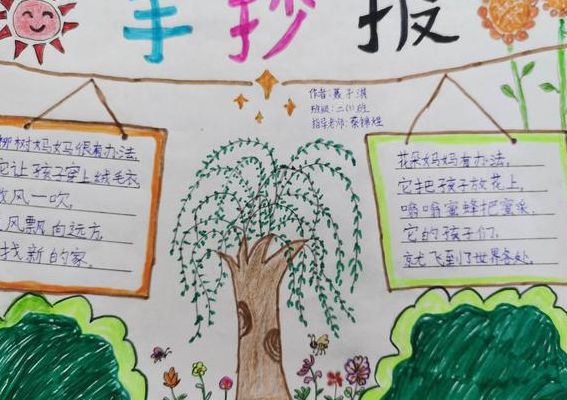 手抄报
作者:聂子淇
班级:二(1)班
指导老师:蔡锦煜
柳树妈妈很有办法,
它让孩子穿上绒毛衣
风一吹,
风飘向远方,
找新的家。
花朵妈妈有办法,
它把孩子放花上,
嗡嗡蜜蜂把蜜采,
它的孩子们,
就飞到了世界各处。